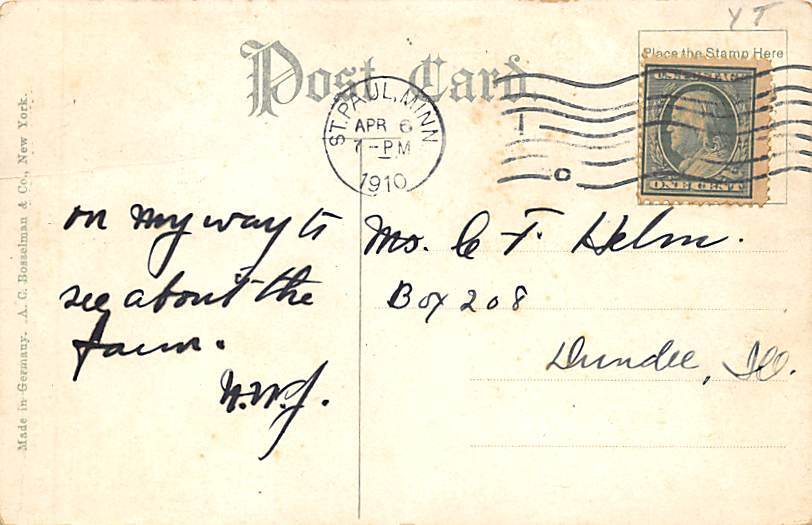 YT
Place the Stamp Here
Post Card.
U.S. POSTAGE
ONE CENT
ST. PAUL, MINN
APR 6
7-PM
1910
Made in Germany. A. C. Bosselman & Co., New York.
on my way to
see about the
farm.
Mrs. C F. Helm.
Box 208
Dundee, Ill.